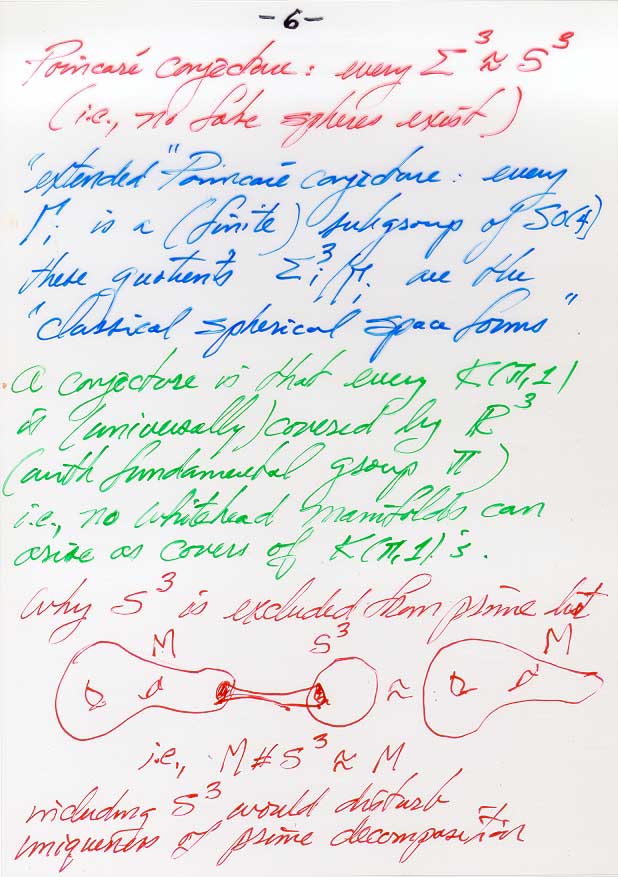 -6-
Poincaré conjecture: every Σ³ ≈ S³
(i.e., no fake spheres exist)
"extended" Poincaré conjecture: every
Γᵢ is a (finite) subgroup of SO(4)
these quotients Σᵢ³/Γᵢ are the
"classical spherical space forms"
A conjecture is that every K(π,1)
is (universally) covered by ℝ³
(with fundamental group π)
i.e., no Whitehead manifolds can
arise as covers of K(π,1)'s.
Why S³ is excluded from prime list
M S³ ≈ M
i.e., M # S³ ≈ M
including S³ would disturb
uniqueness of prime decomposition